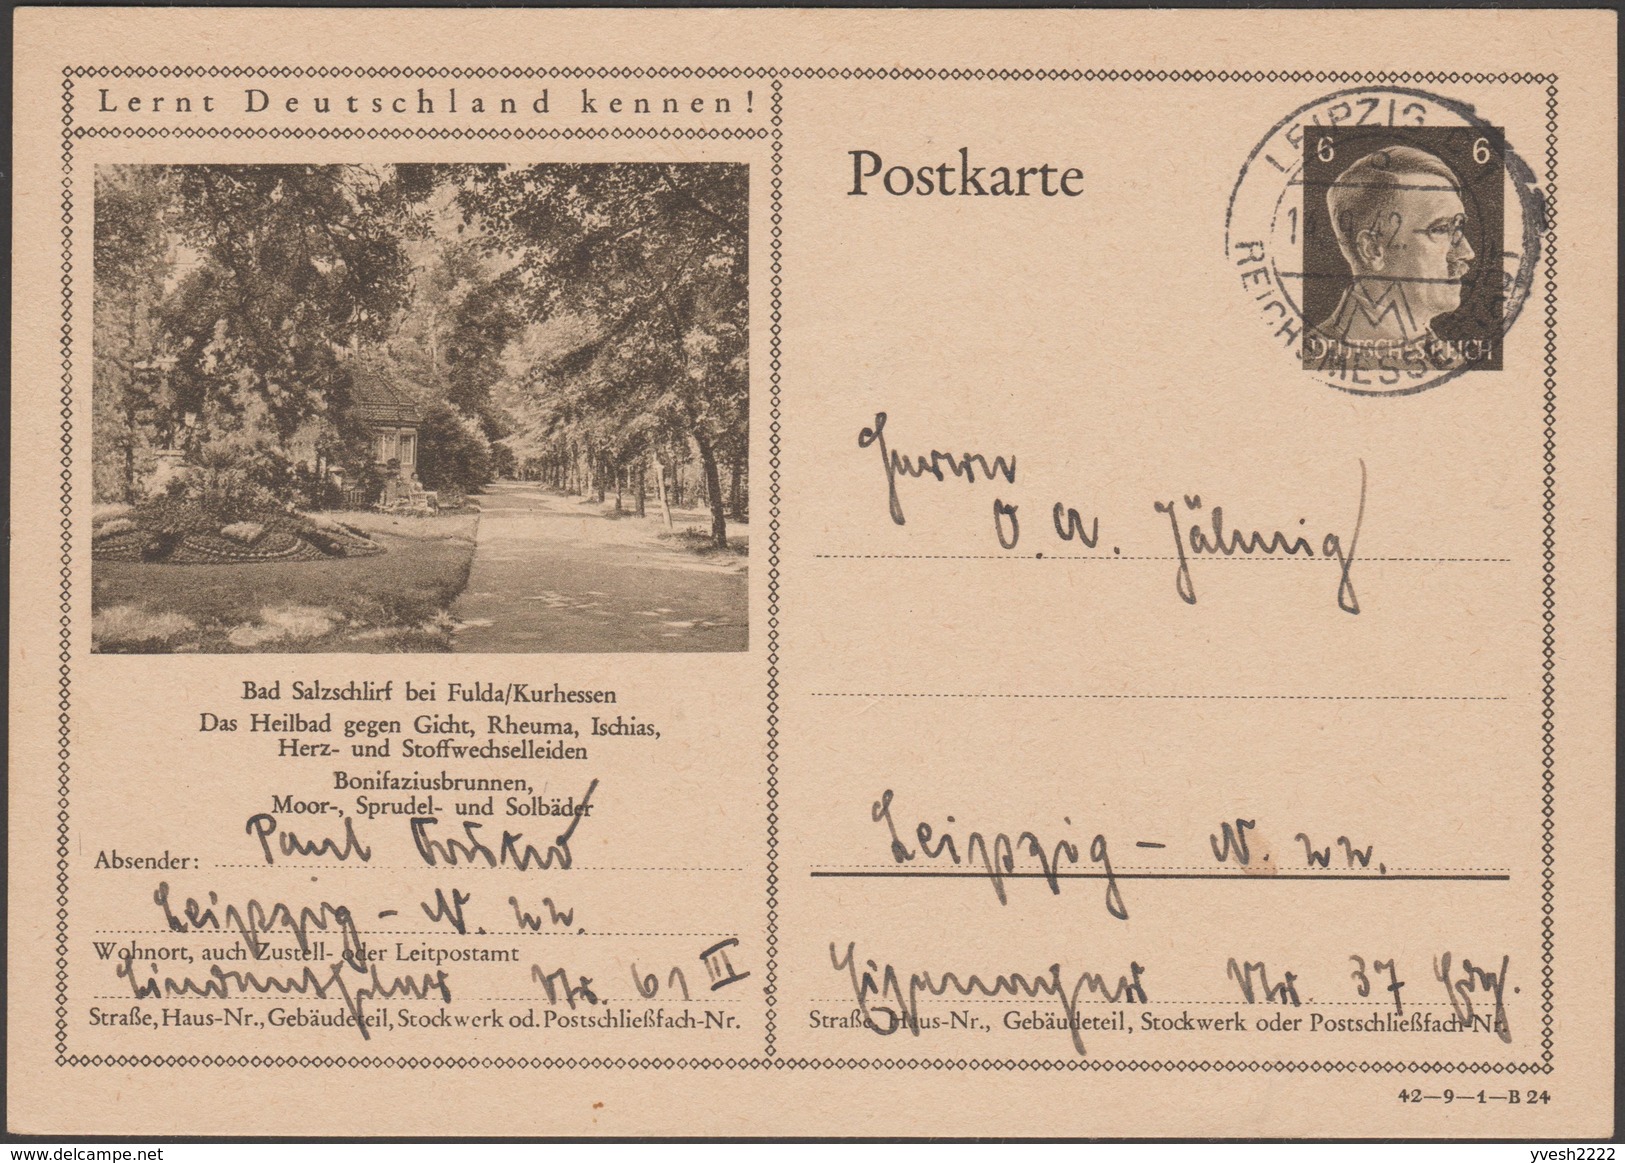 Lernt Deutschland kennen!
Postkarte
6 6
LEIPZIG
42.
REICHSMESSE
DEUTSCHES REICH
Herrn
O. A. Jähnig
Leipzig - N. 22.
Nr. 37
Straße, Haus-Nr., Gebäudeteil, Stockwerk oder Postschließfach-Nr.
Bad Salzschlirf bei Fulda/Kurhessen
Das Heilbad gegen Gicht, Rheuma, Ischias,
Herz- und Stoffwechselleiden
Bonifaziusbrunnen,
Moor-, Sprudel- und Solbäder
Absender: Paul
Leipzig - N. 22.
Wohnort, auch Zustell- oder Leitpostamt
Lindenthaler Str. 61 III
Straße, Haus-Nr., Gebäudeteil, Stockwerk od. Postschließfach-Nr.
42—9—1—B 24
delcampe.net
yvesh2222